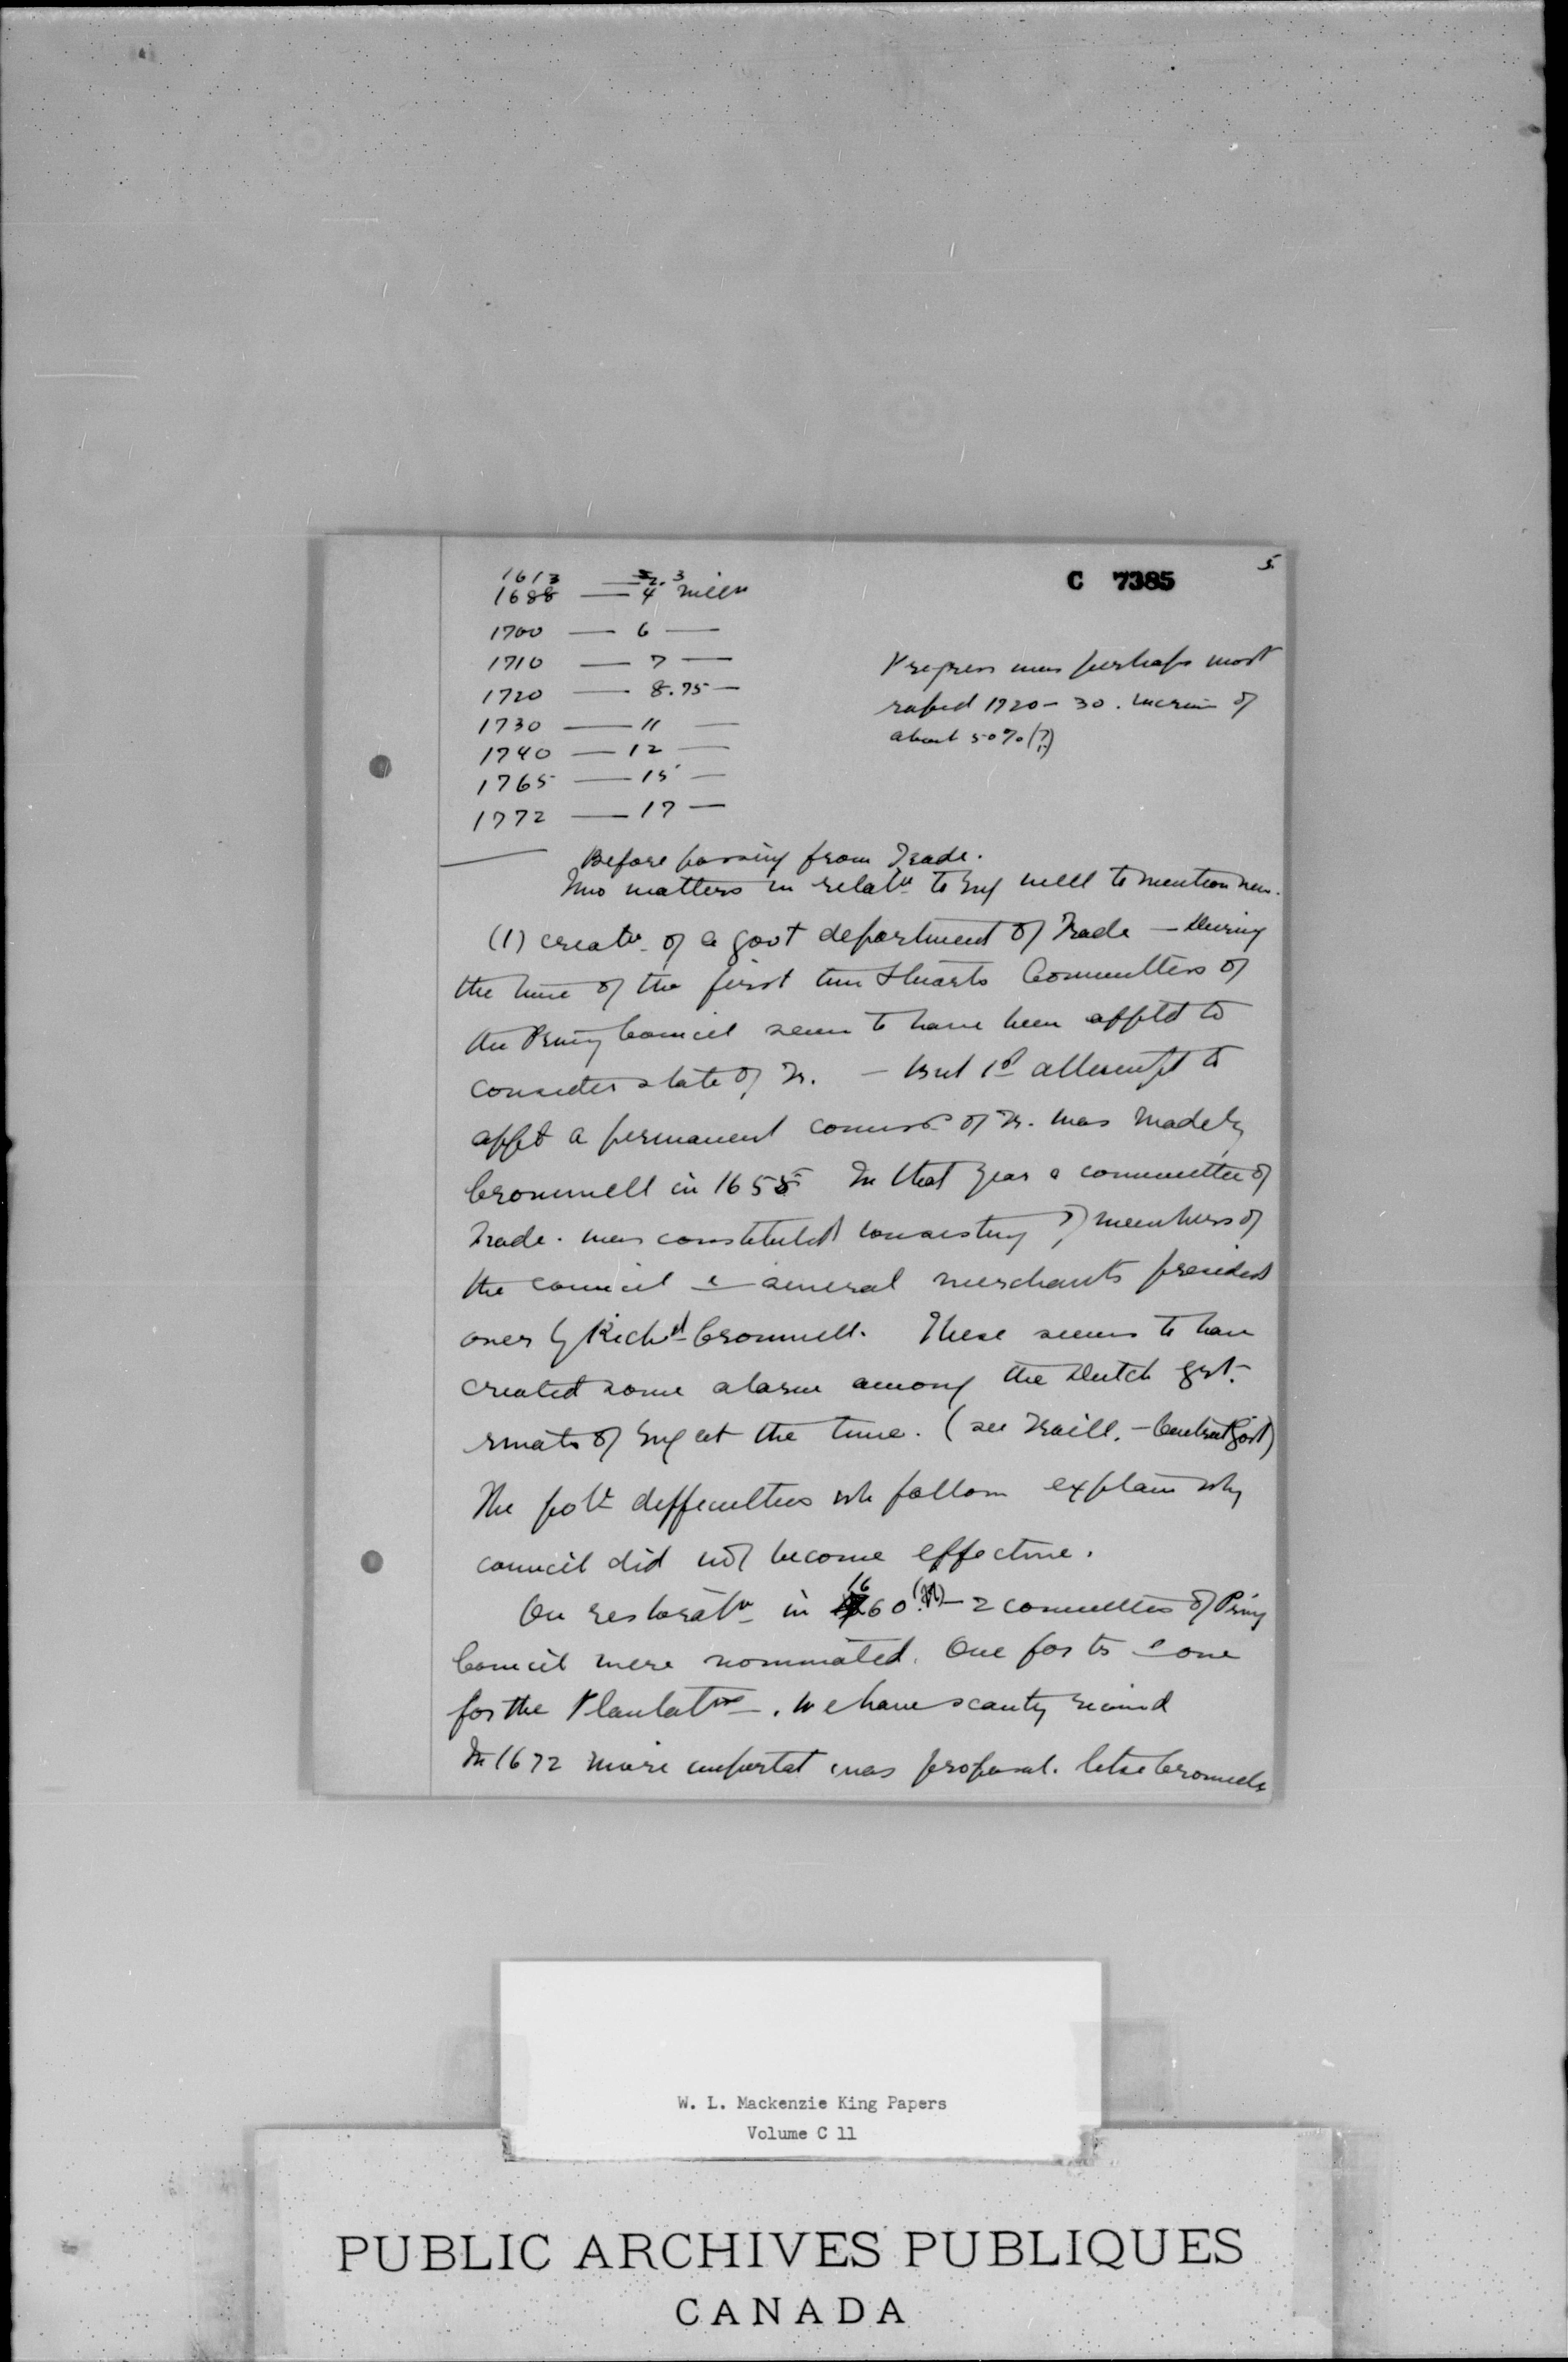 5
C 7385
1613 — 2.3
1688 — 4 milln
1700 — 6 —
1710 — 7 —
1720 — 8.75 —
1730 — 11 —
1740 — 12 —
1765 — 15 —
1772 — 17 —
Progress was perhaps most
rapid 1720 - 30. Increase of
about 50% (?)
Before passing from Trade.
Two matters in relatn to Eng well to mention here.
(1) creatn of a govt department of Trade — During
the time of the first two Stuarts Committees of
the Privy Council seem to have been apptd to
consider state of Tr. — But 1st attempt to
appt a permanent of Tr. was made by
Cromwell in 1655 In that year a committee of
Trade. was constituted consisting of members of
the council & several merchants presided
over by Richd Cromwell. These seems to have
created some alarm among the Dutch
of Eng at the time. (see Traill. — Central Govt)
The polt difficulties wh follow explain why
council did not become effective.
On restoratn in 1660 — 2 committees of Privy
Council were nominated. One for tr & one
for the Plantatns. We have scanty record
In 1672 more importat was proposal. like Cromwells
W. L. Mackenzie King Papers
Volume C 11
PUBLIC ARCHIVES PUBLIQUES
CANADA